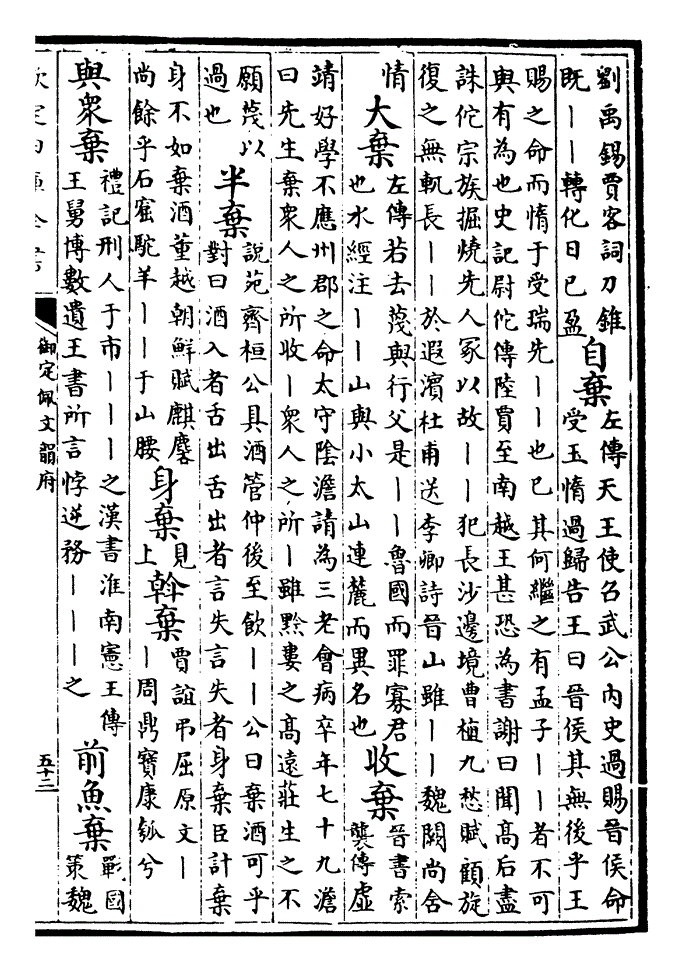 劉禹錫賈客詞刀錐
既丨丨轉化日已盈
自棄
左傳天王使召武公内史過賜晉侯命
受玉惰過歸告王曰晉侯其無後乎王
賜之命而惰于受瑞先丨丨也已其何繼之有孟子丨丨者不可
與有為也史記尉佗傳陸賈至南越王甚恐為書謝曰聞髙后盡
誅佗宗族掘燒先人冢以故丨丨犯長沙邊境曹植九愁賦顧旋
復之無軏長丨丨於遐濱杜甫送李卿詩晉山雖丨丨魏闕尚含
情
大棄
左傳若去蔑與行父是丨丨魯國而罪寡君
也水經注丨丨山與小太山連麓而異名也
收棄
晉書索
襲傳虛
靖好學不應州郡之命太守陰澹請為三老會病卒年七十九澹
曰先生棄衆人之所收丨衆人之所丨雖黔婁之髙遠莊生之不
願蔑以
過也
半棄
說苑齊桓公具酒管仲後至飲丨丨公曰棄酒可乎
對曰酒入者舌出舌出者言失言失者身棄臣計棄
身不如棄酒董越朝鮮賦麒麐
尚餘乎石窟駝羊丨丨于山腰
身棄
見
上
幹棄
賈誼弔屈原文丨
丨周鼎寶康瓠兮
與衆棄
禮記刑人于市丨丨丨之漢書淮南憲王傳
王舅博數遺王書所言悖逆務丨丨丨之
前魚棄
戰國
策魏
欽定四庫全書
御定佩文韻府
五十二